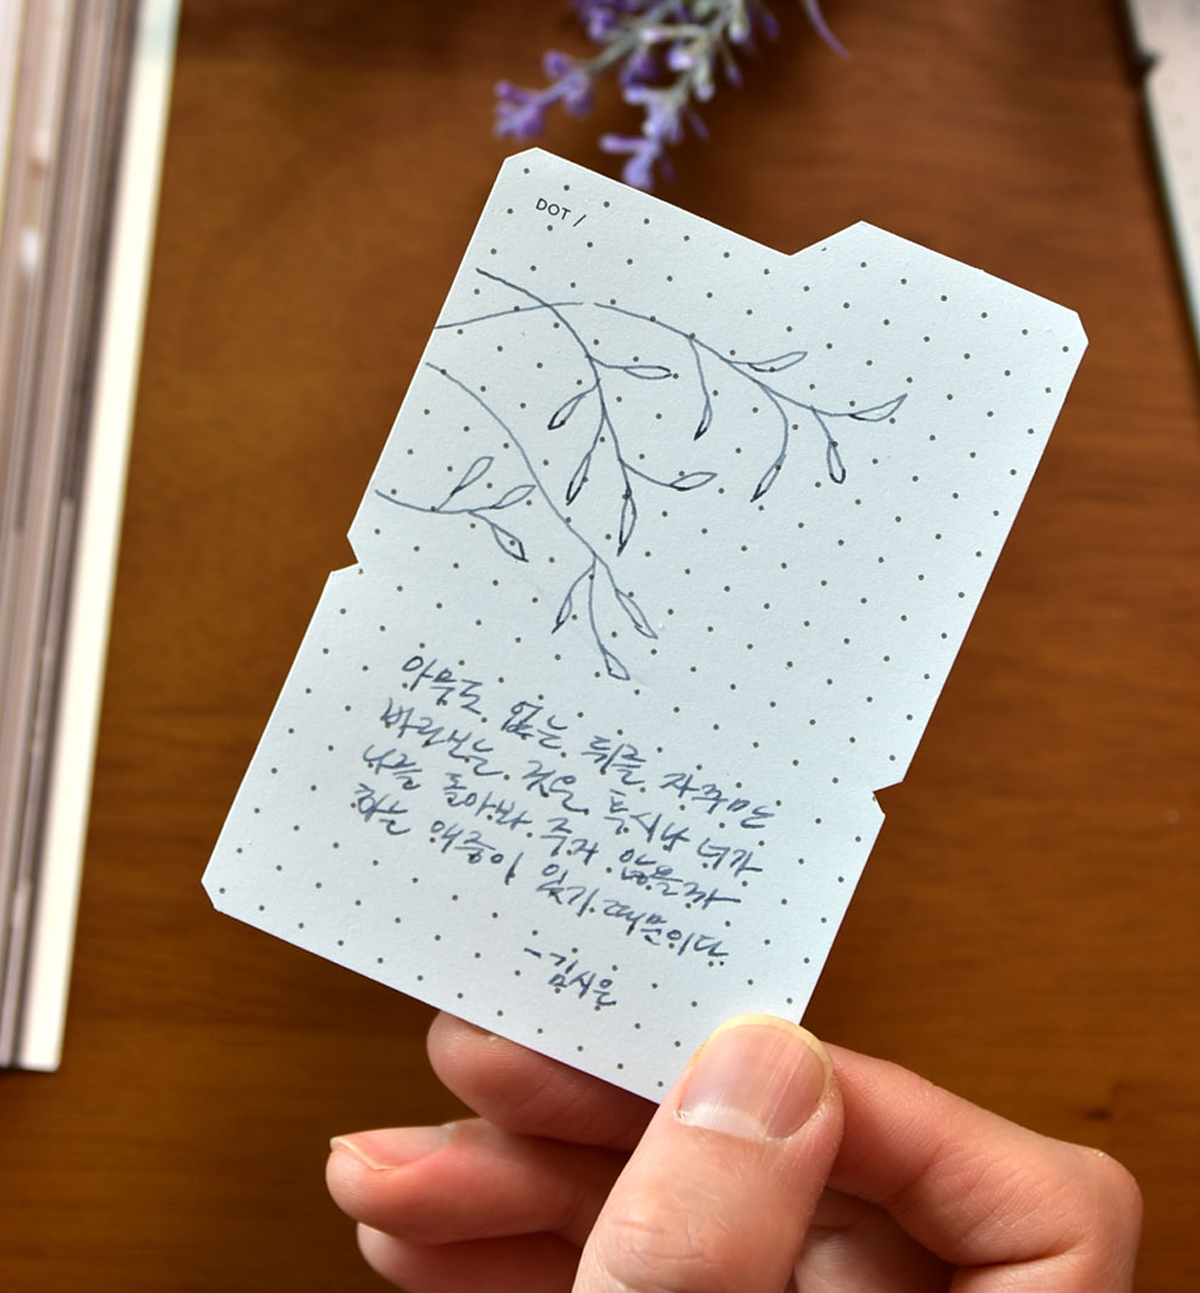 DOT /
아무도 없는 뒤를 자주만
바라보는 것은 혹시나 너가
나를 돌아봐 주지 않을까
하는 애증이 있기 때문이다.
- 김시은